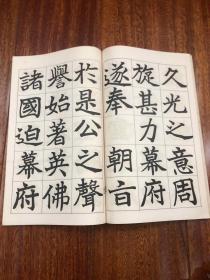 久光之意周
旋甚力幕府
遂奉　朝旨
於是公之聲
譽始著英佛
諸國迫幕府